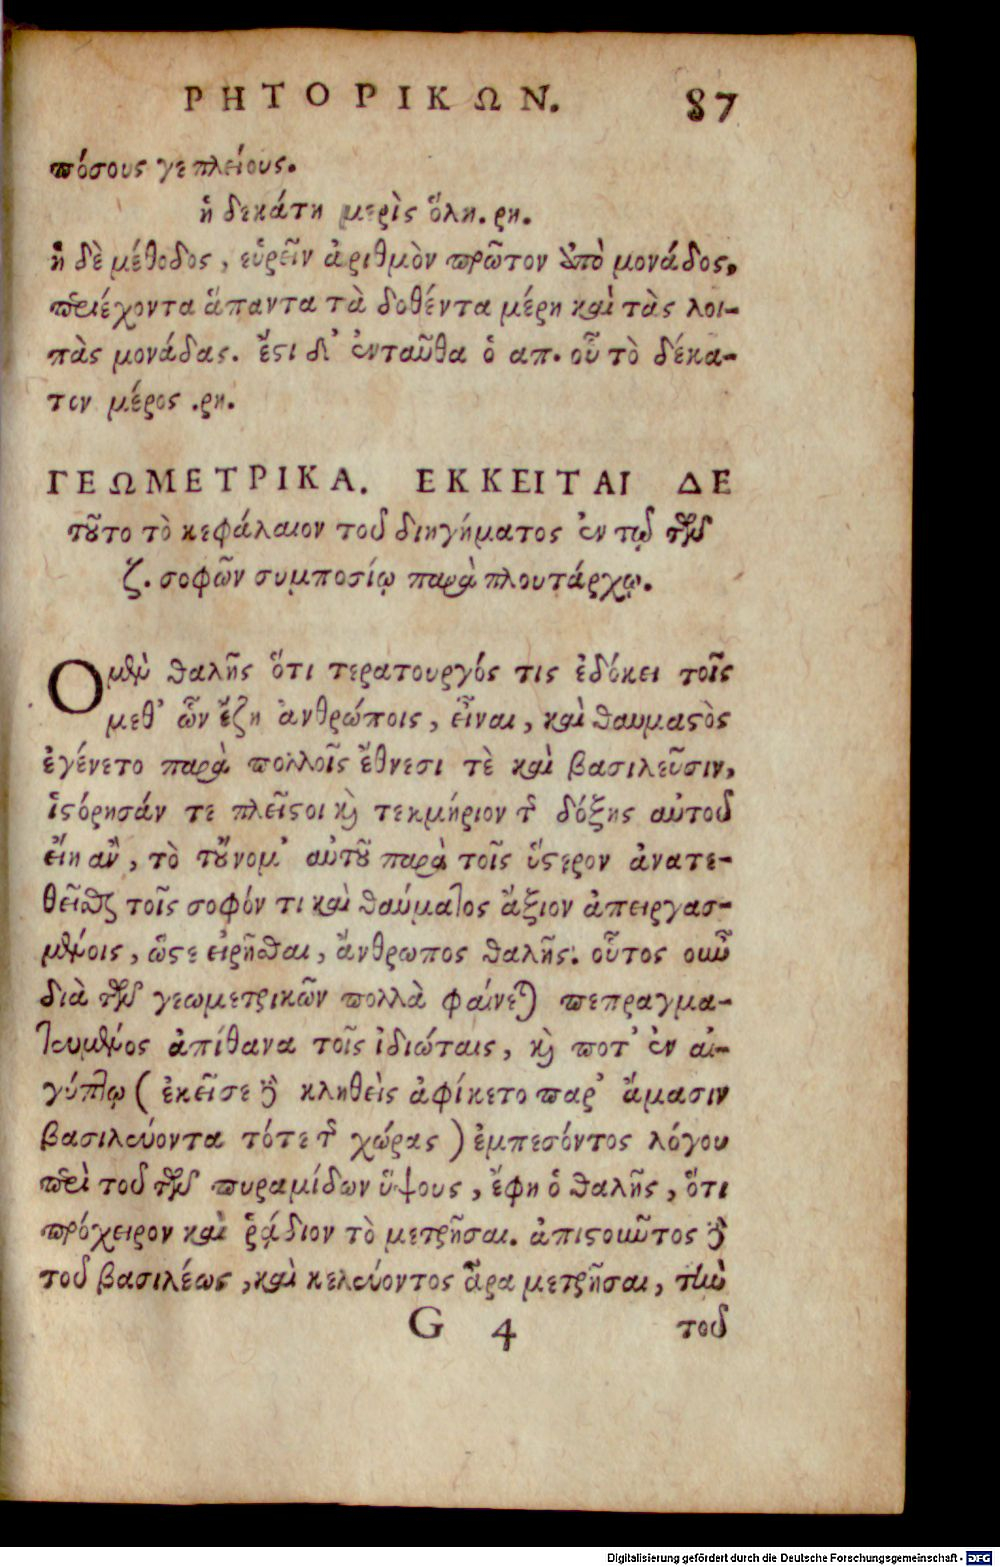 ΡΗΤΟΡΙΚΩΝ. 87
πόσους γε πλείους.
ἡ δεκάτη μερὶς ὅλη. ρη.
ἡ δὲ μέθοδος, εὑρεῖν ἀριθμὸν πρῶτον ὑπὸ μονάδος,
περιέχοντα ἅπαντα τὰ δοθέντα μέρη καὶ τὰς λοι-
πὰς μονάδας. ἔστι δ’ ἐνταῦθα ὁ απ. οὗ τὸ δέκα-
τον μέρος .ρη.
ΓΕΩΜΕΤΡΙΚΑ. ΕΚΚΕΙΤΑΙ ΔΕ
τοῦτο τὸ κεφάλαιον τοῦ διηγήματος ἐν τῷ τῶν
ζ. σοφῶν συμποσίῳ παρὰ πλουτάρχῳ.
Ομὲν θαλῆς ὅτι τερατουργός τις ἐδόκει τοῖς
μεθ’ ὧν ἔζη ἀνθρώποις, εἶναι, καὶ θαυμαστὸς
ἐγένετο παρὰ πολλοῖς ἔθνεσι τὲ καὶ βασιλεῦσιν,
ἱστόρησάν τε πλεῖστοι καὶ τεκμήριον τῆς δόξης αὐτοῦ
εἴη ἂν, τὸ τοὔνομ’ αὐτοῦ παρὰ τοῖς ὕστερον ἀνατε-
θεῖσθαι τοῖς σοφόν τι καὶ θαύματος ἄξιον ἀπειργασ-
μένοις, ὥστε εἰρῆσθαι, ἄνθρωπος θαλῆς. οὗτος οὖν
διὰ τῶν γεωμετρικῶν πολλὰ φαίνεται πεπραγμα-
τευμένος ἀπίθανα τοῖς ἰδιώταις, καὶ ποτ’ ἐν αἰ-
γύπτῳ ( ἐκεῖσε γὰρ κληθεὶς ἀφίκετο παρ’ ἅμασιν
βασιλεύοντα τότε τῆς χώρας ) ἐμπεσόντος λόγου
περὶ τοῦ τῶν πυραμίδων ὕψους, ἔφη ὁ θαλῆς, ὅτι
πρόχειρον καὶ ῥᾴδιον τὸ μετρῆσαι. ἀπιστοῦντος δὲ
τοῦ βασιλέως, καὶ κελεύοντος ἆρα μετρῆσαι, τὴν
G 4 τοῦ
Digitalisierung gefördert durch die Deutsche Forschungsgemeinschaft - DFG